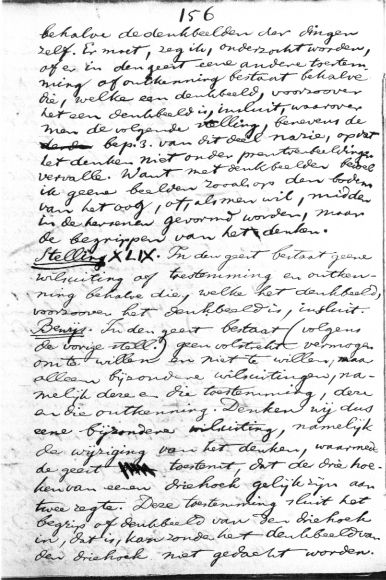 156
behalve de denkbeelden der dingen
zelf. Er moet, zeg ik, onderzocht worden,
of er in den geest eene andere toestem-
ming of ontkenning bestaat behalve
die, welke een denkbeeld, voorzoover
het een denkbeeld is, insluit, waarover
men de volgende stelling, benevens de
bep. 3. van dit deel nazie, opdat
het denken niet onder prentverbeeldingen
vervalle. Want met denkbeelden bedoel
ik geene beelden zooals op den bodem
van het oog, of, als men wil, midden
in de hersenen gevormd worden, maar
de begrippen van het denken.
Stelling XLIX. In den geest bestaat geene
wilsuiting of toestemming en ontken-
ning behalve die, welke het denkbeeld,
voorzoover het denkbeeld is, insluit.
Bewijs. In den geest bestaat (volgens
de vorige stell.) geen volstrekt vermogen
om te willen en niet te willen, maar
alleen bijzondere wilsuitingen, na-
melijk deze en die toestemming, deze
en die ontkenning. Denken wij dus
eene bijzondere wilsuiting, namelijk
de wijziging van het denken, waarmede
de geest toestemt, dat de drie hoe-
ken van eenen driehoek gelijk zijn aan
twee regte. Deze toestemming sluit het
begrip of denkbeeld van den driehoek
in, dat is, kan zonder het denkbeeld van
den driehoek niet gedacht worden.